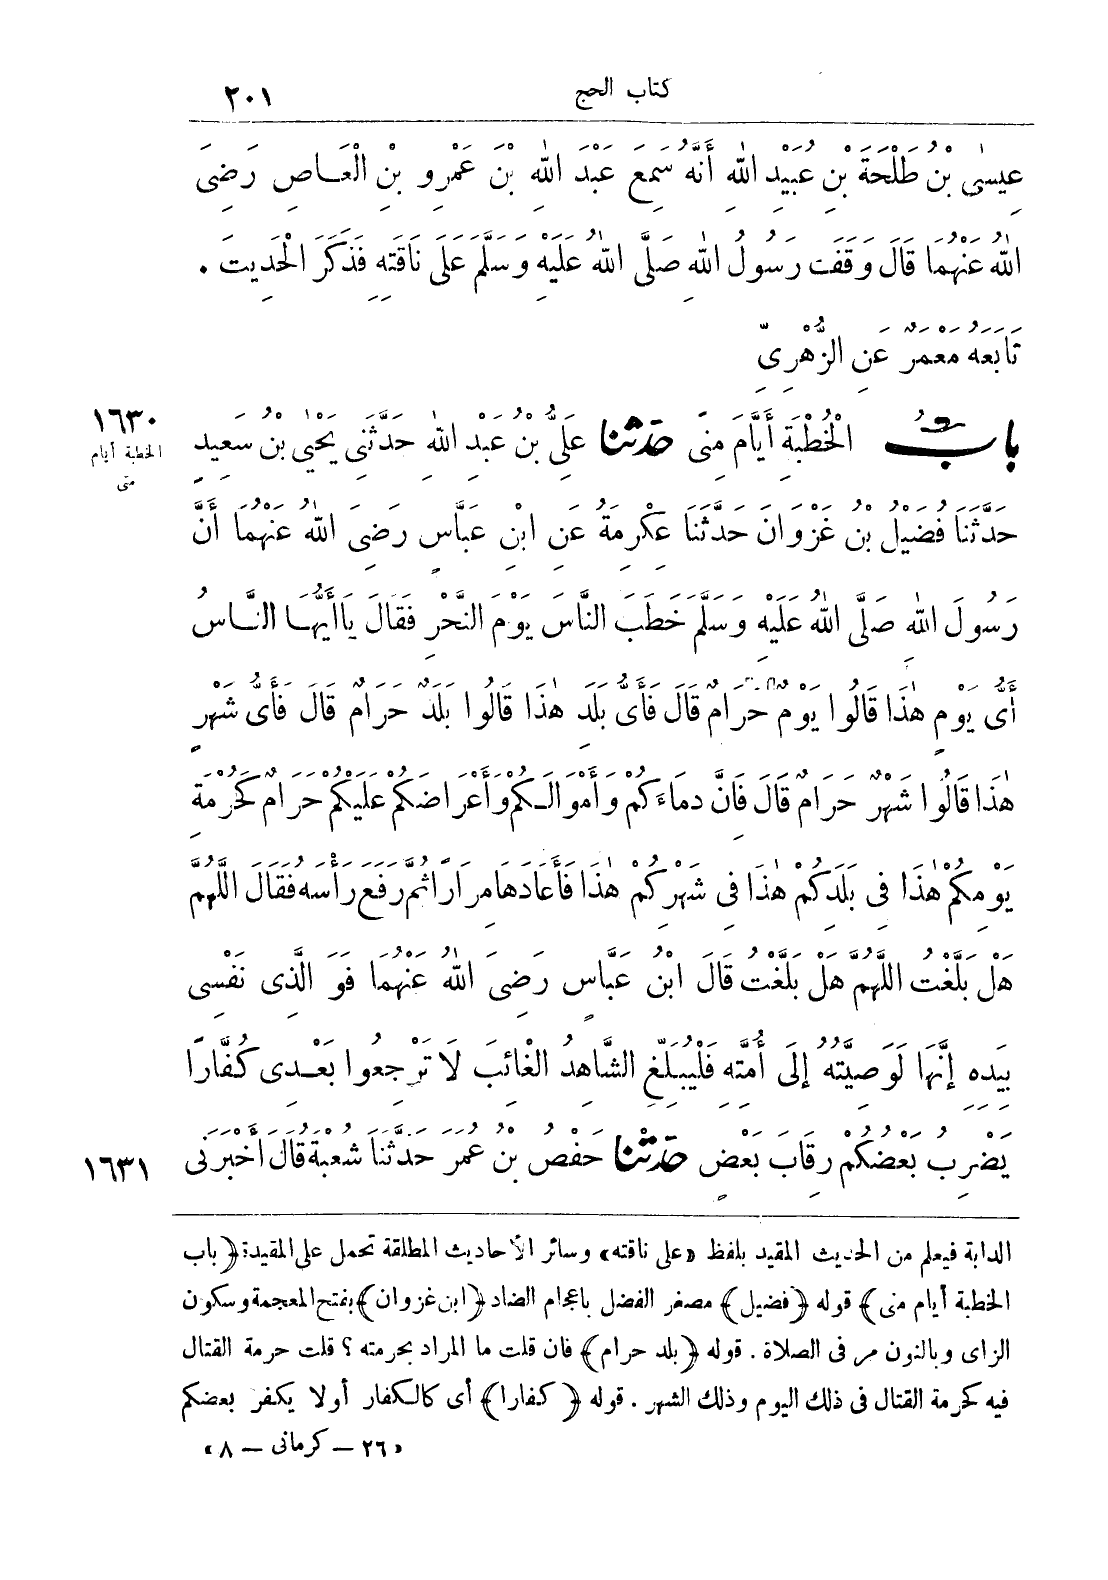 كتاب الحج ٢٠١
عِيسَى بْنُ طَلْحَةَ بْنِ عُبَيْدِ اللهِ أَنَّهُ سَمِعَ عَبْدَ اللهِ بْنَ عَمْرِو بْنِ الْعَاصِ رَضِيَ
اللهُ عَنْهُمَا قَالَ وَقَفَ رَسُولُ اللهِ صَلَّى اللهُ عَلَيْهِ وَسَلَّمَ عَلَى نَاقَتِهِ فَذَكَرَ الْحَدِيثَ .
تَابَعَهُ مَعْمَرٌ عَنِ الزُّهْرِيِّ
بابُ الْخُطْبَةِ أَيَّامَ مِنًى حَدَّثَنَا عَلِيُّ بْنُ عَبْدِ اللهِ حَدَّثَنِي يَحْيَى بْنُ سَعِيدٍ
١٦٣٠
الخطبة أيام
منى
حَدَّثَنَا فُضَيْلُ بْنُ غَزْوَانَ حَدَّثَنَا عِكْرِمَةُ عَنِ ابْنِ عَبَّاسٍ رَضِيَ اللهُ عَنْهُمَا أَنَّ
رَسُولَ اللهِ صَلَّى اللهُ عَلَيْهِ وَسَلَّمَ خَطَبَ النَّاسَ يَوْمَ النَّحْرِ فَقَالَ يَاأَيُّهَا النَّاسُ
أَيُّ يَوْمٍ هٰذَا قَالُوا يَوْمٌ حَرَامٌ قَالَ فَأَيُّ بَلَدٍ هٰذَا قَالُوا بَلَدٌ حَرَامٌ قَالَ فَأَيُّ شَهْرٍ
هٰذَا قَالُوا شَهْرٌ حَرَامٌ قَالَ فَانَّ دِمَاءَكُمْ وَأَمْوَالَكُمْ وَأَعْرَاضَكُمْ عَلَيْكُمْ حَرَامٌ كَحُرْمَةِ
يَوْمِكُمْ هٰذَا فِي بَلَدِكُمْ هٰذَا فِي شَهْرِكُمْ هٰذَا فَأَعَادَهَا مِرَارًا ثُمَّ رَفَعَ رَأْسَهُ فَقَالَ اللَّهُمَّ
هَلْ بَلَّغْتُ اللَّهُمَّ هَلْ بَلَّغْتُ قَالَ ابْنُ عَبَّاسٍ رَضِيَ اللهُ عَنْهُمَا فَوَ الَّذِي نَفْسِي
بِيَدِهِ إِنَّهَا لَوَصِيَّتُهُ إِلَى أُمَّتِهِ فَلْيُبَلِّغِ الشَّاهِدُ الْغَائِبَ لَا تَرْجِعُوا بَعْدِي كُفَّارًا
يَضْرِبُ بَعْضُكُمْ رِقَابَ بَعْضٍ حَدَّثَنَا حَفْصُ بْنُ عُمَرَ حَدَّثَنَا شُعْبَةُ قَالَ أَخْبَرَنِي
١٦٣١
الدابة فيعلم من الحديث المقيد بلفظ «على ناقته» وسائر الأحاديث المطلقة تحمل على المقيدة (باب
الخطبة أيام منى) قوله (فضيل) مصغر الفضل باعجام الضاد (ابن غزوان) بفتح المعجمة وسكون
الزاى وبالنون مر فى الصلاة . قوله (بلد حرام) فان قلت ما المراد بحرمته ؟ قلت حرمة القتال
فيه كحرمة القتال فى ذلك اليوم وذلك الشهر . قوله (كفارا) أى كالكفار أولا يكفر بعضكم
«٢٦ – كرمانى – ٨»